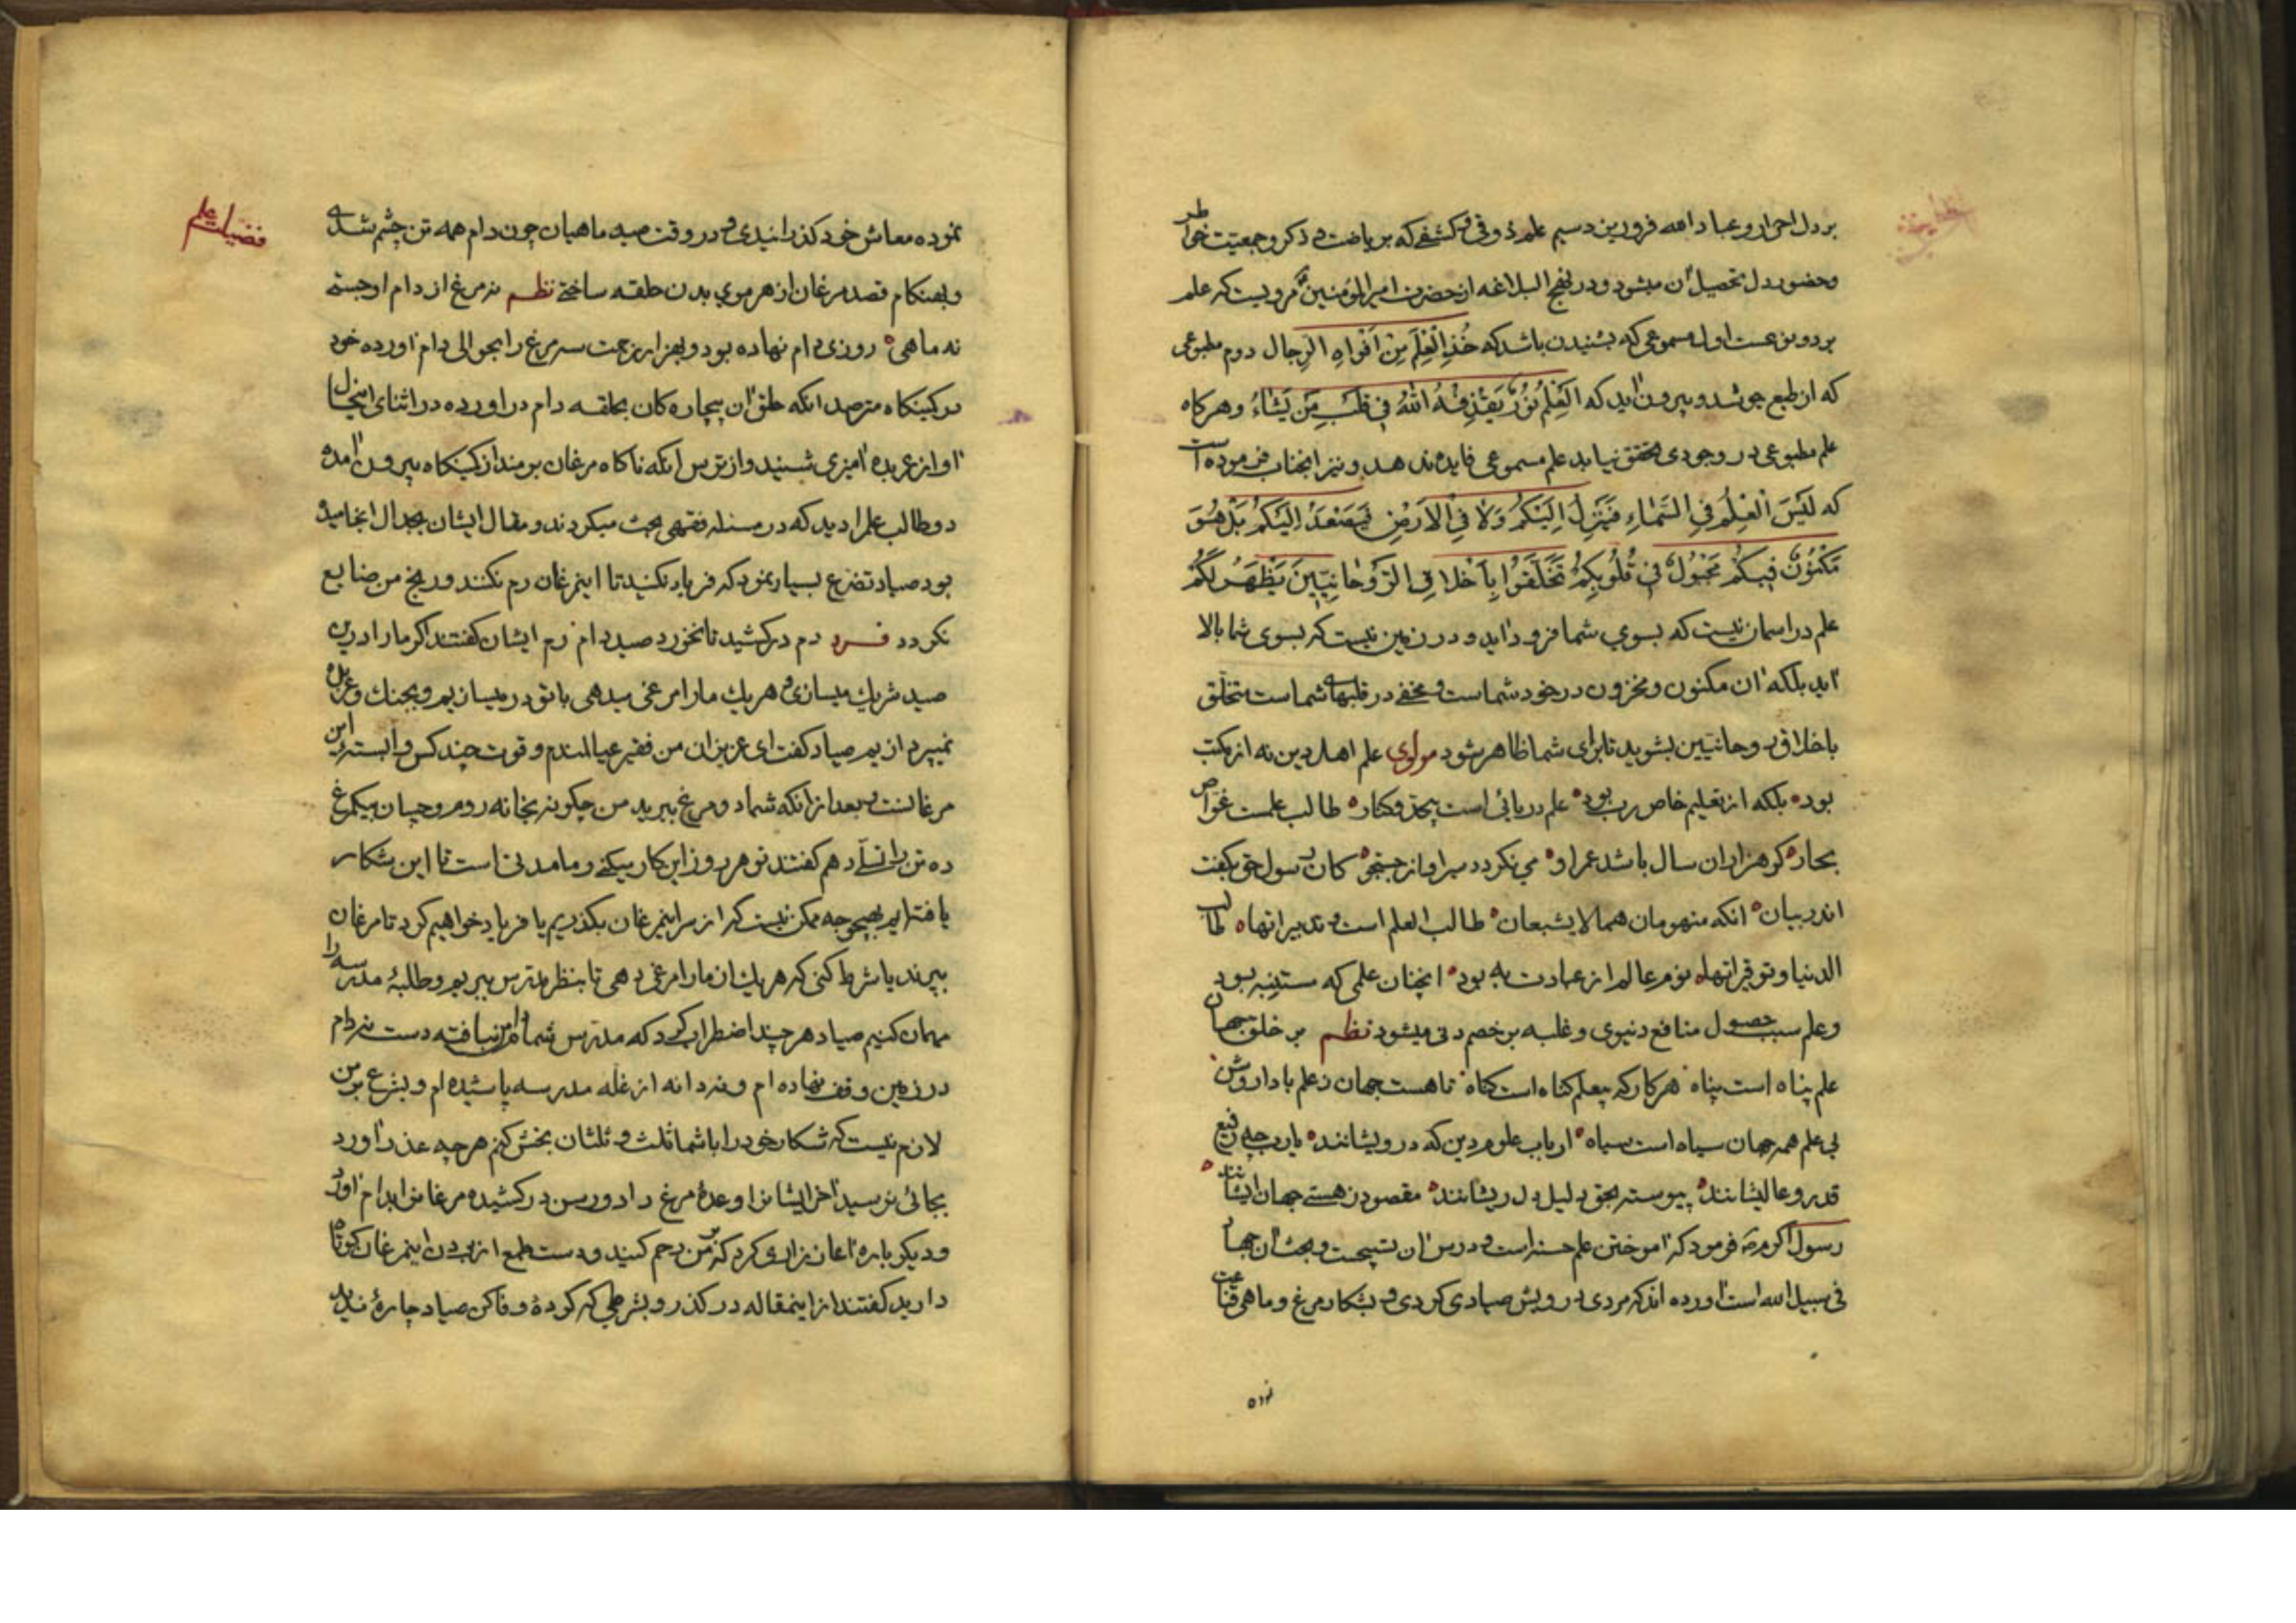 بر دل احرار و عباد الله فرو ریزد سیم علم ذوقی و کشفی که بریاضت و ذکر و جمعیت خواطر
و حضور دل تحصیل آن میشود و در نهج البلاغه از حضرت امیرالمؤمنین مرویست که علم
بر دو نوعست اول مسموعی که بشنیدن باشد که خُذِ الْعِلْمَ مِنْ اَفْوٰاهِ الرِجال دوم مطبوعی
که از طبع جوشد و بیرون آید که اَلْعِلْمُ نُورٌ یَقْذِفُهُ اللّٰهُ فی قَلْبِ مَنْ یَشٰاءُ و هرکاه
علم مطبوعی در وجودی محقق نیاید علم مسموعی فایده ندهد و نیز انجناب فرموده است
که لَیْسَ الْعِلْمُ فِی السَّمٰاءِ فَیَنْزِلَ اِلَیْکُمْ وَلاٰ فِی الْاَرْضِ فَیَصْعَدَ اِلَیْکُمْ بَلْ هُوَ
مَکْنُونٌ فیکُمْ مَجْبُولٌ فی قُلُوبِکُمْ تَخَلَّقُوا بِاَخْلاٰقِ الرَّوْحٰانِیّینَ یَظْهَرْ لَکُمْ
علم در اسمان نیست که بسوی شما فرود آید و در زمین نیست که بسوی شما بالا
آید بلکه آن مکنون و مخزون در خود شماست و مخفی در قلبهای شماست متخلق
باخلاق روحانیین بشوید تا برای شما ظاهر شود مولوی علم اهل دین نه از مکتب
بود بلکه از تعلیم خاص رب بود علم دریائی است بیحد و کنار طالب علمست غواص
بحار کر هزاران سال باشد عمر او می نکردد سیر او از جستجو کان رسول حق بکفت
اندر بیان انکه منهومان هما لا یشبعان طالب العلم است و تدبیراتها طالب
الدنیا و توفیراتها نوم عالم از عبادت به بود انچنان علمی که مستنبه بود
و علم سبب حصول منافع دنیوی و غلبه بر خصم دنی میشود نظم بر خلق جهان
علم پناه است پناه هر کار که بیعلم کناه است کناه تا هست جهان ز علم بادا روشن
بی علم همه جهان سیاه است سیاه ارباب علوم دین که درویشانند یارب چه رفیع
قدر و عالیشانند پیوسته بحق دلیل دل ریشانند مقصود ز هستی جهان ایشانند
رسول اکرم ص فرمود که آموختن علم حسنه است و درس آن تسبیحت و بحث آن جهاد
فی سبیل الله است آورده اند که مردی درویش صیادی کردی و بشکار مرغ و ماهی قناعت
نموده
فضیلت علم
نموده معاش خود کذرانیدی و در وقت صید ماهیان چون دام همه تن چشم شدی
و بهنکام قصد مرغان از هر موی بدن حلقه ساختی نظم نه مرغ از دام او جستی
نه ماهی روزی دام نهاده بود و بهزار زحمت سه مرغ را بحوالی دام آورده خود
در کمینکاه مترصد انکه حلق آن بیچاره کان بحلقه دام در اورده در اثنای اینحال
آواز عربده آمیزی شنید و از ترس انکه ناکاه مرغان برمند از کمینکاه بیرون آمده
دو طالب علم را دید که در مسئله فقهی بحث میکردند و مقال ایشان بجدال انجامیده
بود صیاد تضرع بسیار نمود که فریاد نکنید تا اینمرغان رم نکنند و رنج من ضایع
نکردد فرد دم درکشید تا نخورد صید دام رم ایشان کفتند اکر ما را درین
صید شریک میسازی و هر یک ما را مرغی میدهی با تو در میسازیم و بجنک و عربده
نمیپردازیم صیاد کفت ای عزیزان من فقیر عیالمندم و قوت چند کس وابسته این
مرغانست بعد از انکه شما دو مرغ ببرید من چکونه بخانه روم و چسان بیکمرغ
ده تن را تسلی دهم کفتند تو هر روز این کار میکنی و ما مدتی است تا این شکار
یافته ایم بهیچوجه ممکن نیست که از سر اینمرغان بکذریم یا فریاد خواهیم کرد تا مرغان
بپرند یا شرط کنی که هر یک از ما را مرغی دهی تا بنظر مدرس ببریم و طلبهٔ مدرسه را
مهمان کنیم صیاد هر چند اضطراب کرد که مدرس شما دام من نبافته دست نه دام
در زمین وقف نهاده ام و نه دانه از غله مدرسه پاشیده ام و بشرع بر من
لازم نیست که شکار خود را با شما ثلث و ثلثان بخش کنم هر چه عذر آورد
بجائی نرسید آخر ایشانرا وعدهٔ مرغ داد و رسن درکشیده مرغانرا بدام آورد
و دیکر باره آغاز زاری کرد که بر من رحم کنید و دست طمع از بردن اینمرغان کوتاه
دارید کفتند از اینمقاله درکذر و بشرطی که کردهٔ وفا کن صیاد چارهٔ ندید